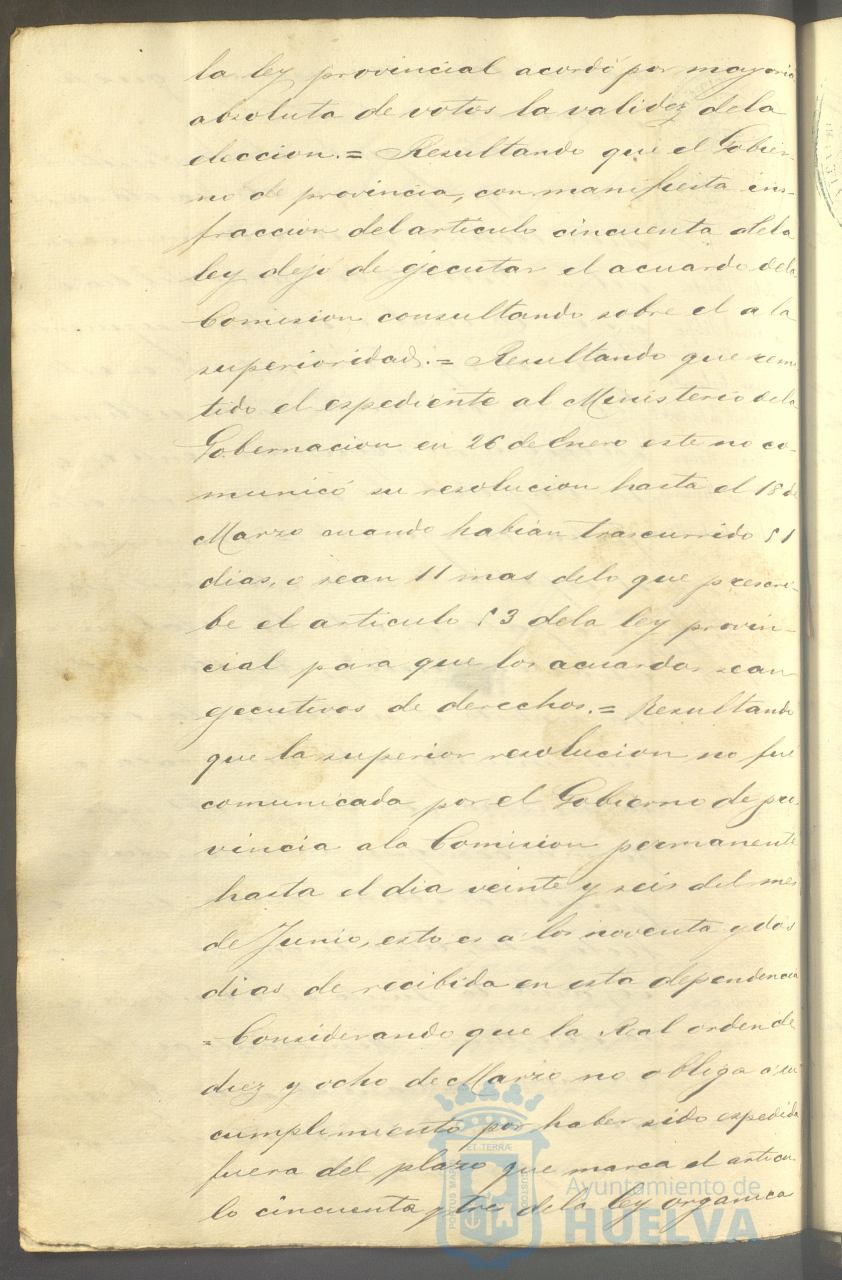 la ley provincial acordó por mayoria
absoluta de votos la validez dela
eleccion.= Resultando que el Gobier-
no de provincia, con manifiesta in-
fraccion del articulo cincuenta dela
ley dejó de ejecutar el acuerdo dela
Comision consultando sobre el a la
superioridad.= Resultando que remi
tido el espediente al Ministerio dela
Gobernacion en 26 de Enero este no co-
municó su resolucion hasta el 18 de
Marzo cuando habian trascurrido 51
dias, o sean 11 mas delo que prescri-
be el articulo 53 dela ley provin-
cial para que los acuerdos sean
ejecutivos de derechos.= Resultando
que la superior resolucion no fué
comunicada por el Gobierno de pro-
vincia ala Comision permanente
hasta el dia veinte y seis del mes
de Junio, esto es a los noventa y dos
dias de recibida en esta dependencia
= Considerando que la Real orden de
diez y ocho de Marzo no obliga a su
cumplimiento por haber sido espedida
fuera del plazo que marca el articu-
lo cincuenta y tre dela ley organica
Ayuntamiento de
HUELVA